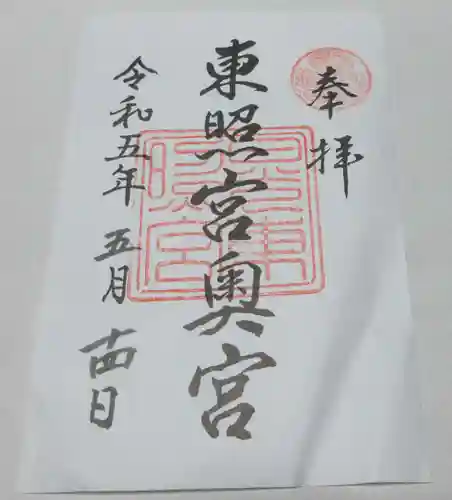 奉拝
東照宮奥宮
令和五年 五月 十四日